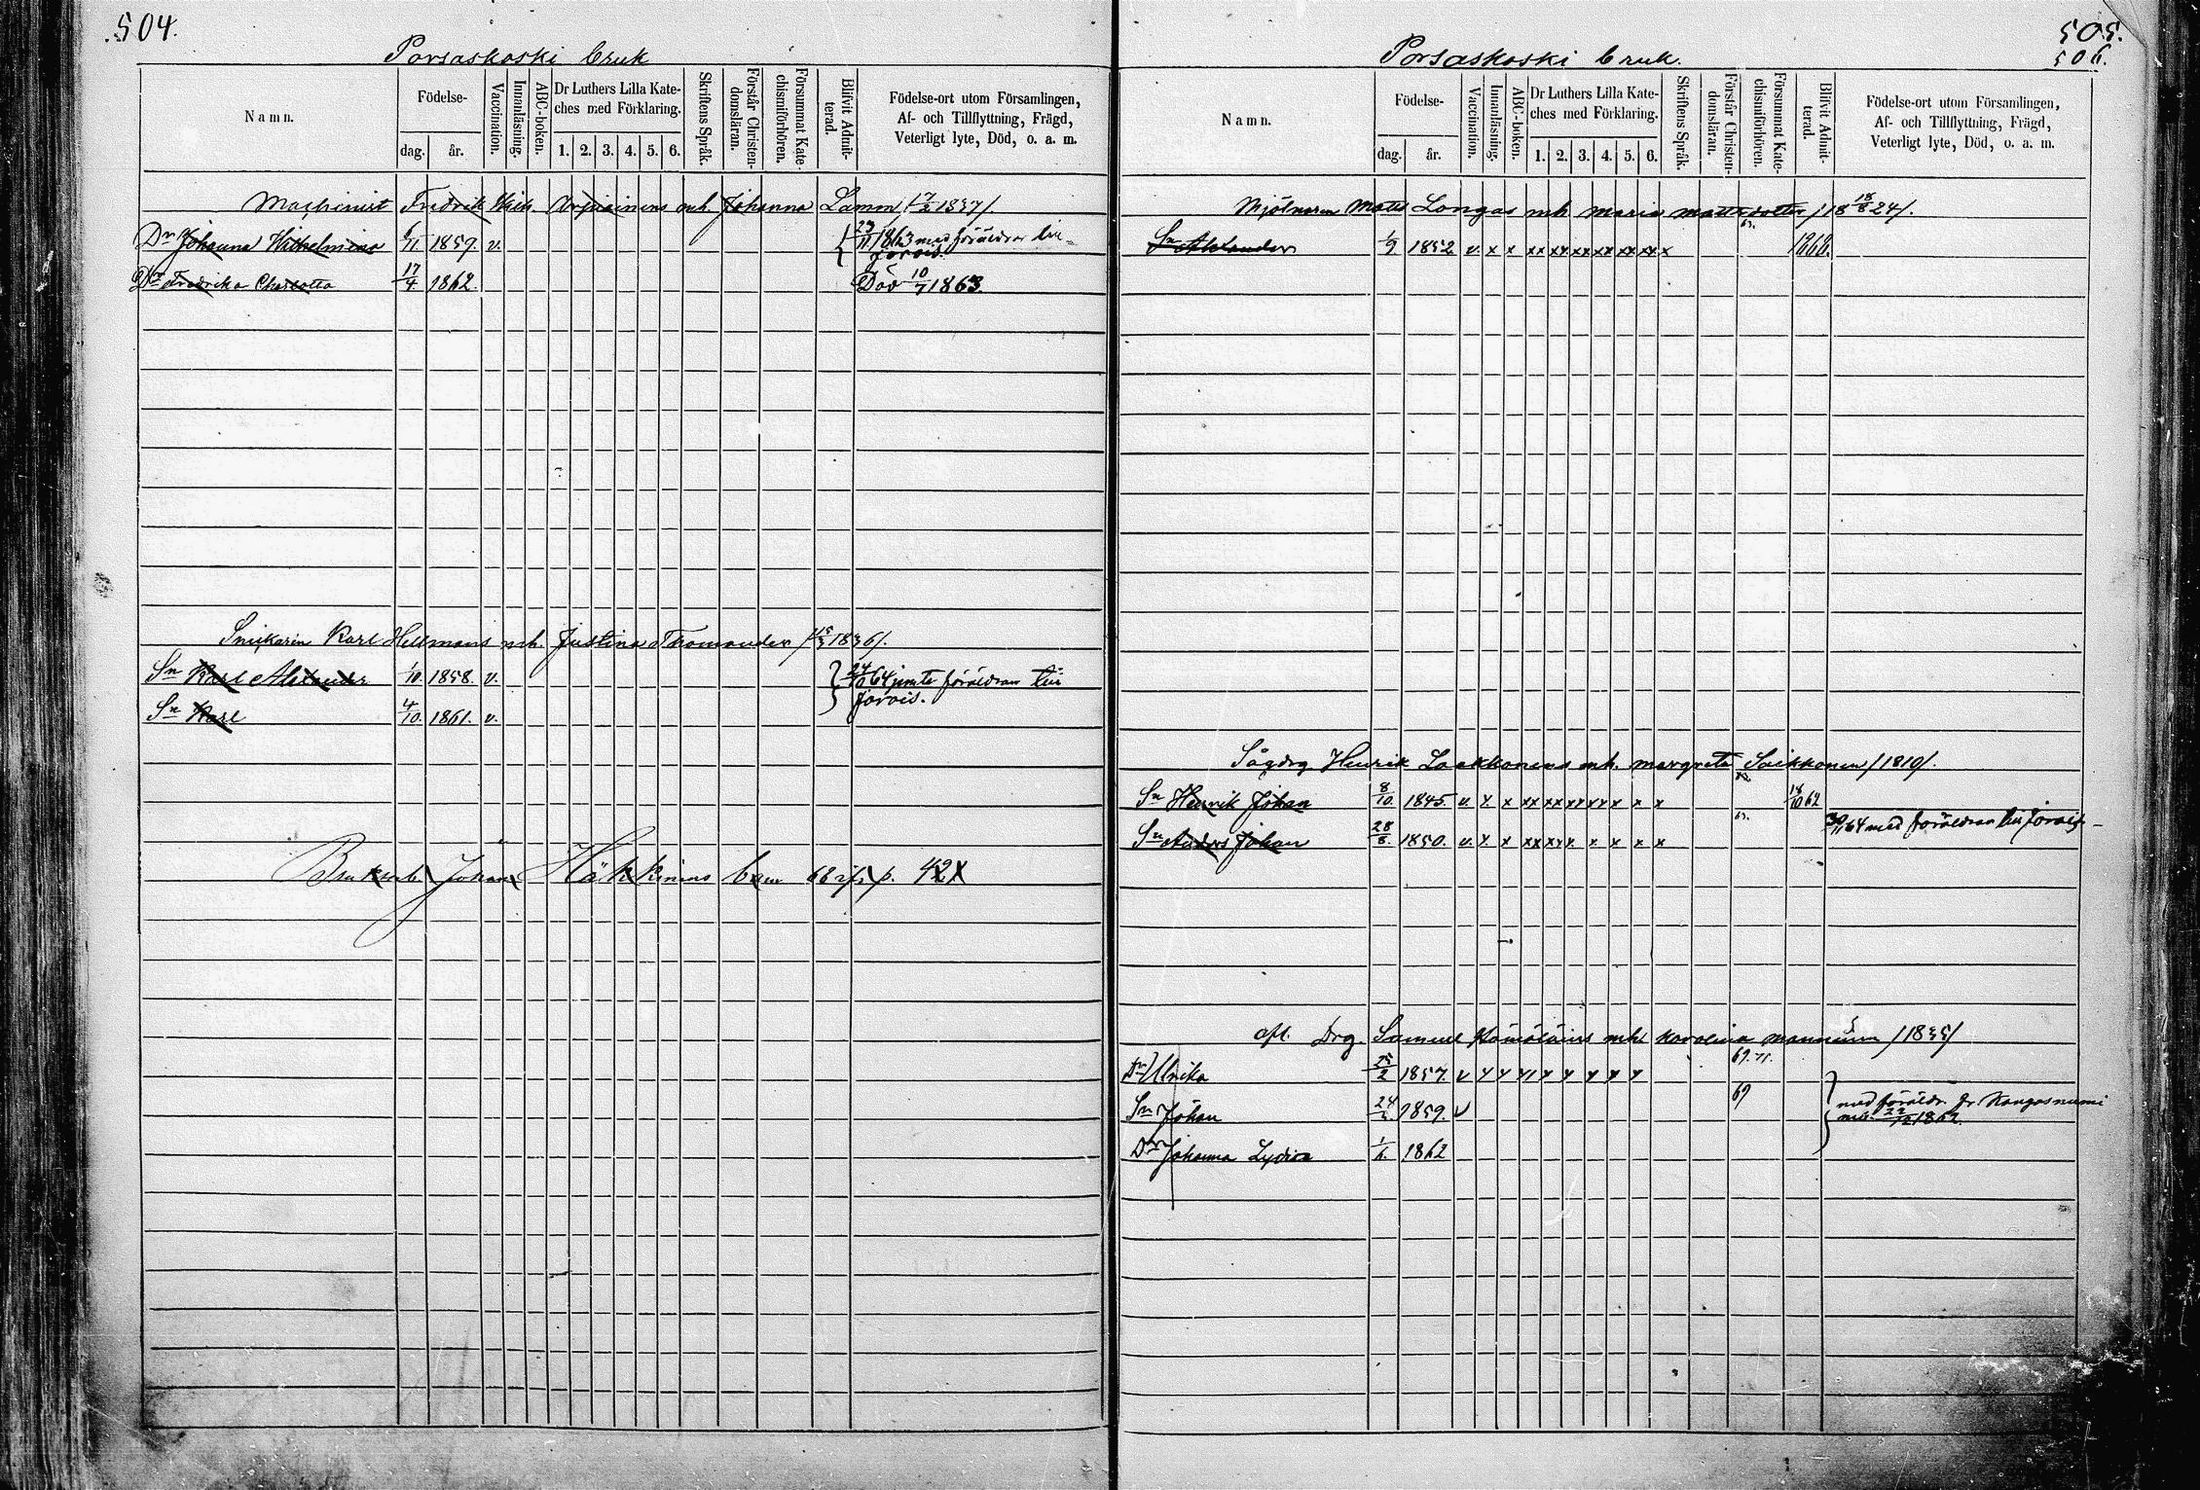 504.
Porsaskoski bruk
Namn.
Födelse-
dag. år.
Vaccination.
Innanläsning.
ABC-boken.
Dr Luthers Lilla Kate-
ches med Förklaring.
1. 2. 3. 4. 5. 6.
Skriftens Språk.
Förstår Christen-
domsläran.
Försummat Kate-
chismiförhören.
Blifvit Admit-
terad.
Födelse-ort utom Församlingen,
Af- och Tillflyttning, Frägd,
Veterligt lyte, Död, o. a. m.
Machinist Fredrik Wilh. mh. Johanna Lamon 1837/.
Dr Johanna Wilhelmina 6/11 1859. v. 1863 med föräldrar
Dr Fredrika Charlotta 17/4 1862. Död 10/7 1863.
Snickarin Karl Hellmans mh. Justina Thomander 1836/.
Sn Karl Alexander 1/10. 1858. v. 64 föräldrar till
Sn Karl 4/10. 1861. v. Jorois.
Johan Häkkinens barn p. 42
505.
506.
Porsaskoski bruk.
Namn.
Födelse-
dag. år.
Vaccination.
Innanläsning.
ABC-boken.
Dr Luthers Lilla Kate-
ches med Förklaring.
1. 2. 3. 4. 5. 6.
Skriftens Språk.
Förstår Christen-
domsläran.
Försummat Kate-
chismiförhören.
Blifvit Admit-
terad.
Födelse-ort utom Församlingen,
Af- och Tillflyttning, Frägd,
Veterligt lyte, Död, o. a. m.
Mjölnaren Mats Longas mh Maria Mattsdotter / 18 18/8 24/.
Sn Alexander 1/9 1852 v. x x xx xx xx xx xx x 1868.
Sågdrg Henrik Laakkonens mh. Margreta Saikkonen /1810/.
Sn Henrik Johan 8/10. 1845. v. x x xx xx xx xx x x 18/10 62
Sn Anders Johan 28/8. 1850. v. x x xx xx x x x x x 64 med föräldrar till Jorois
afl. Drg. Samuel mh Karolina /1835/
69. 71.
Dr Ulrika 1857. v x x x x x x x x
Sn Johan 1859. v 69 med föräldr. fr. Kangasniemi
22/12 1862.
Dr Johanna Lydia 1/6. 1862